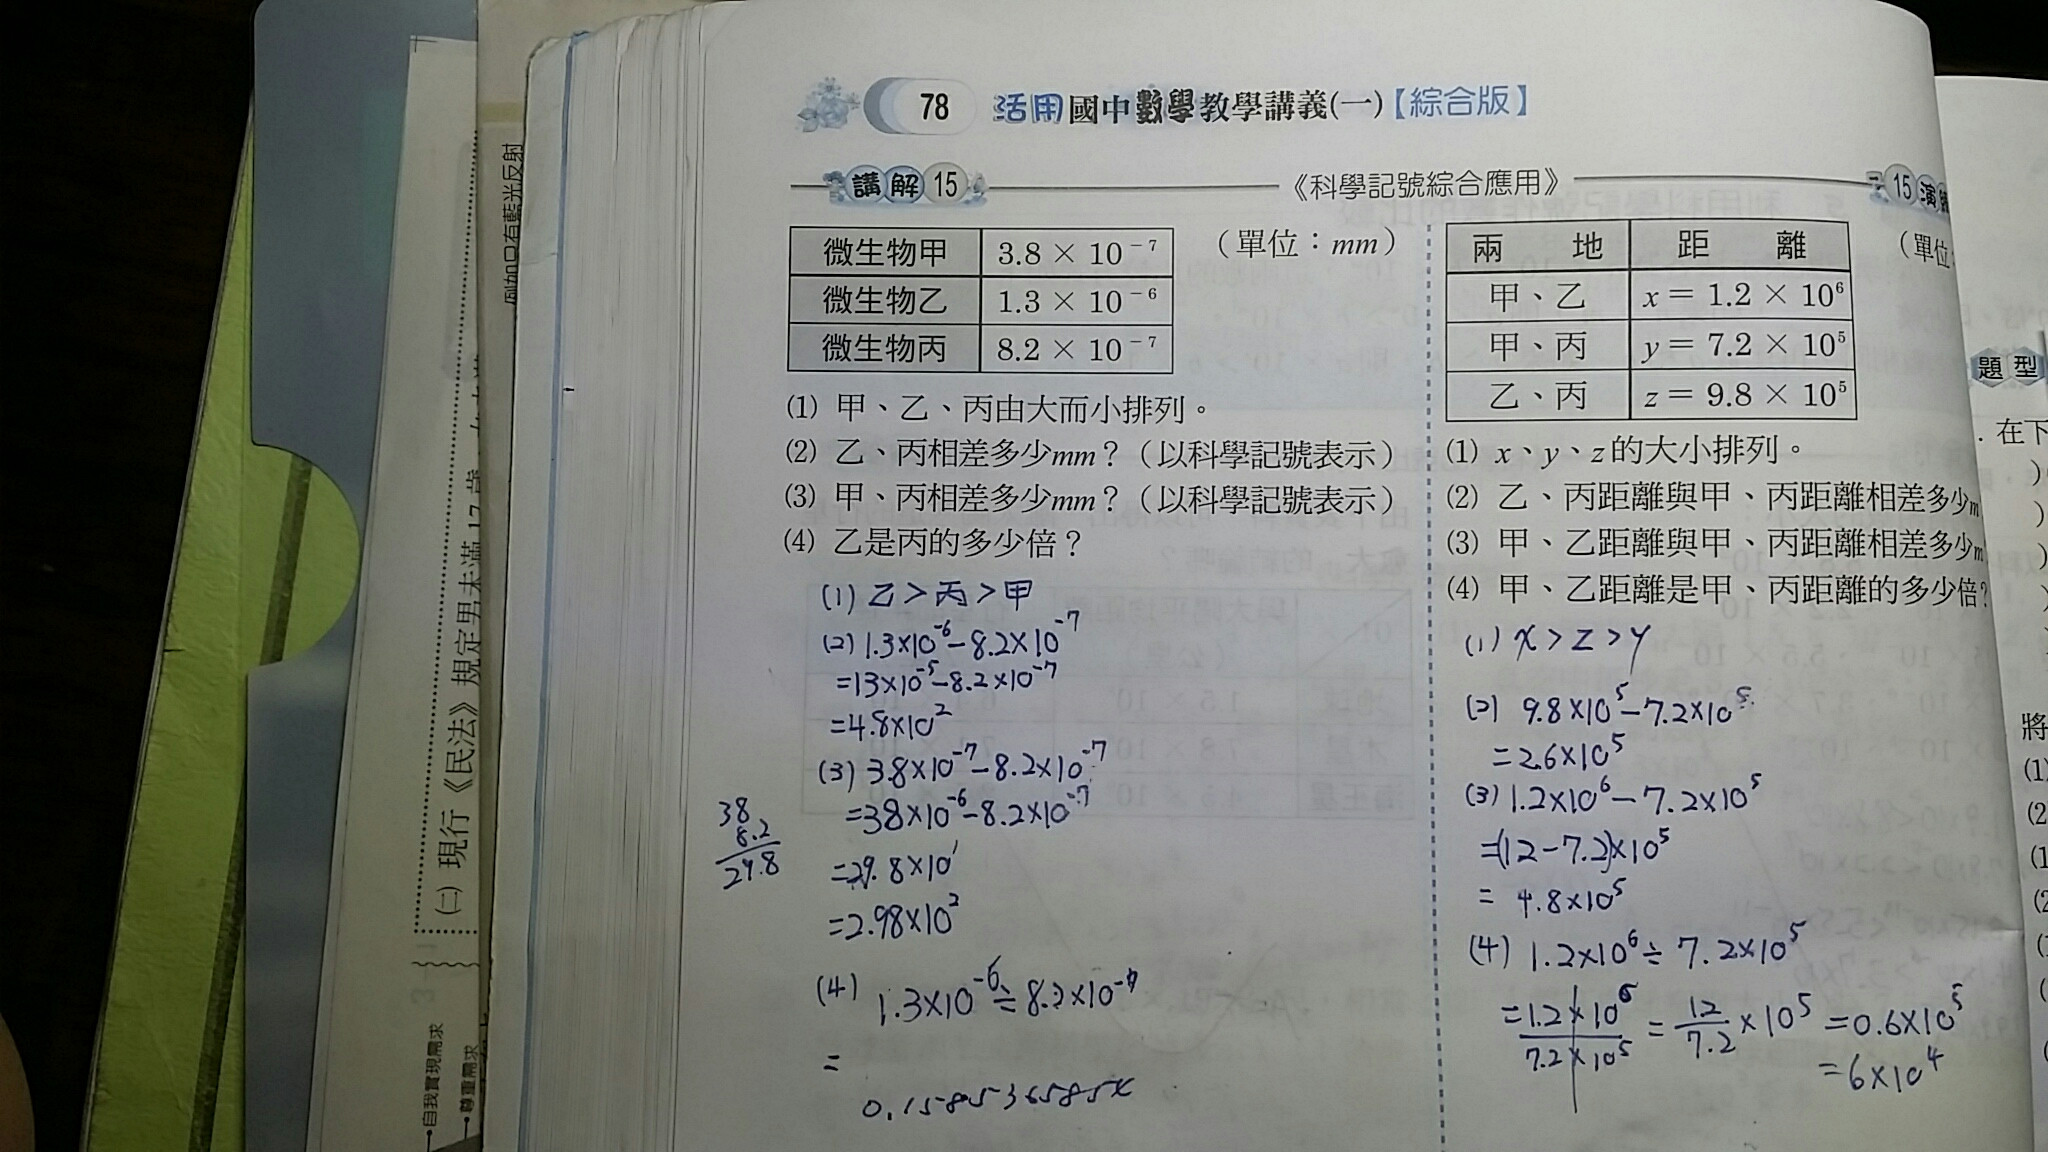 78 活用國中數學教學講義(一)【綜合版】
講解15
《科學記號綜合應用》
15演
微生物甲 3.8 × 10⁻⁷
微生物乙 1.3 × 10⁻⁶
微生物丙 8.2 × 10⁻⁷
(單位：mm)
(1) 甲、乙、丙由大而小排列。
(2) 乙、丙相差多少mm？(以科學記號表示)
(3) 甲、丙相差多少mm？(以科學記號表示)
(4) 乙是丙的多少倍？
(1) 乙>丙>甲
(2) 1.3×10⁻⁶-8.2×10⁻⁷
=13×10⁻⁵-8.2×10⁻⁷
=4.8×10²
(3) 3.8×10⁻⁷-8.2×10⁻⁷
=38×10⁻⁶-8.2×10⁻⁷
=29.8×10¹
=2.98×10²
38
8.2
29.8
(4) 1.3×10⁻⁶÷8.2×10⁻⁷
=
兩 地 距 離
甲、乙 x = 1.2 × 10⁶
甲、丙 y = 7.2 × 10⁵
乙、丙 z = 9.8 × 10⁵
(單位
(1) x、y、z的大小排列。
(2) 乙、丙距離與甲、丙距離相差多少m
(3) 甲、乙距離與甲、丙距離相差多少m
(4) 甲、乙距離是甲、丙距離的多少倍？
(1) x>z>y
(2) 9.8×10⁵-7.2×10⁵
=2.6×10⁵
(3) 1.2×10⁶-7.2×10⁵
=(12-7.2)×10⁵
=4.8×10⁵
(4) 1.2×10⁶÷7.2×10⁵
=1.2×10⁶/7.2×10⁵ = 12/7.2×10⁵ =0.6×10⁵
=6×10⁴
題型
. 在下
將
(1)
(2
(1
(2
例如只有藍光反射
(二) 現行《民法》規定男未滿17歲
自我實現需求
尊重需求